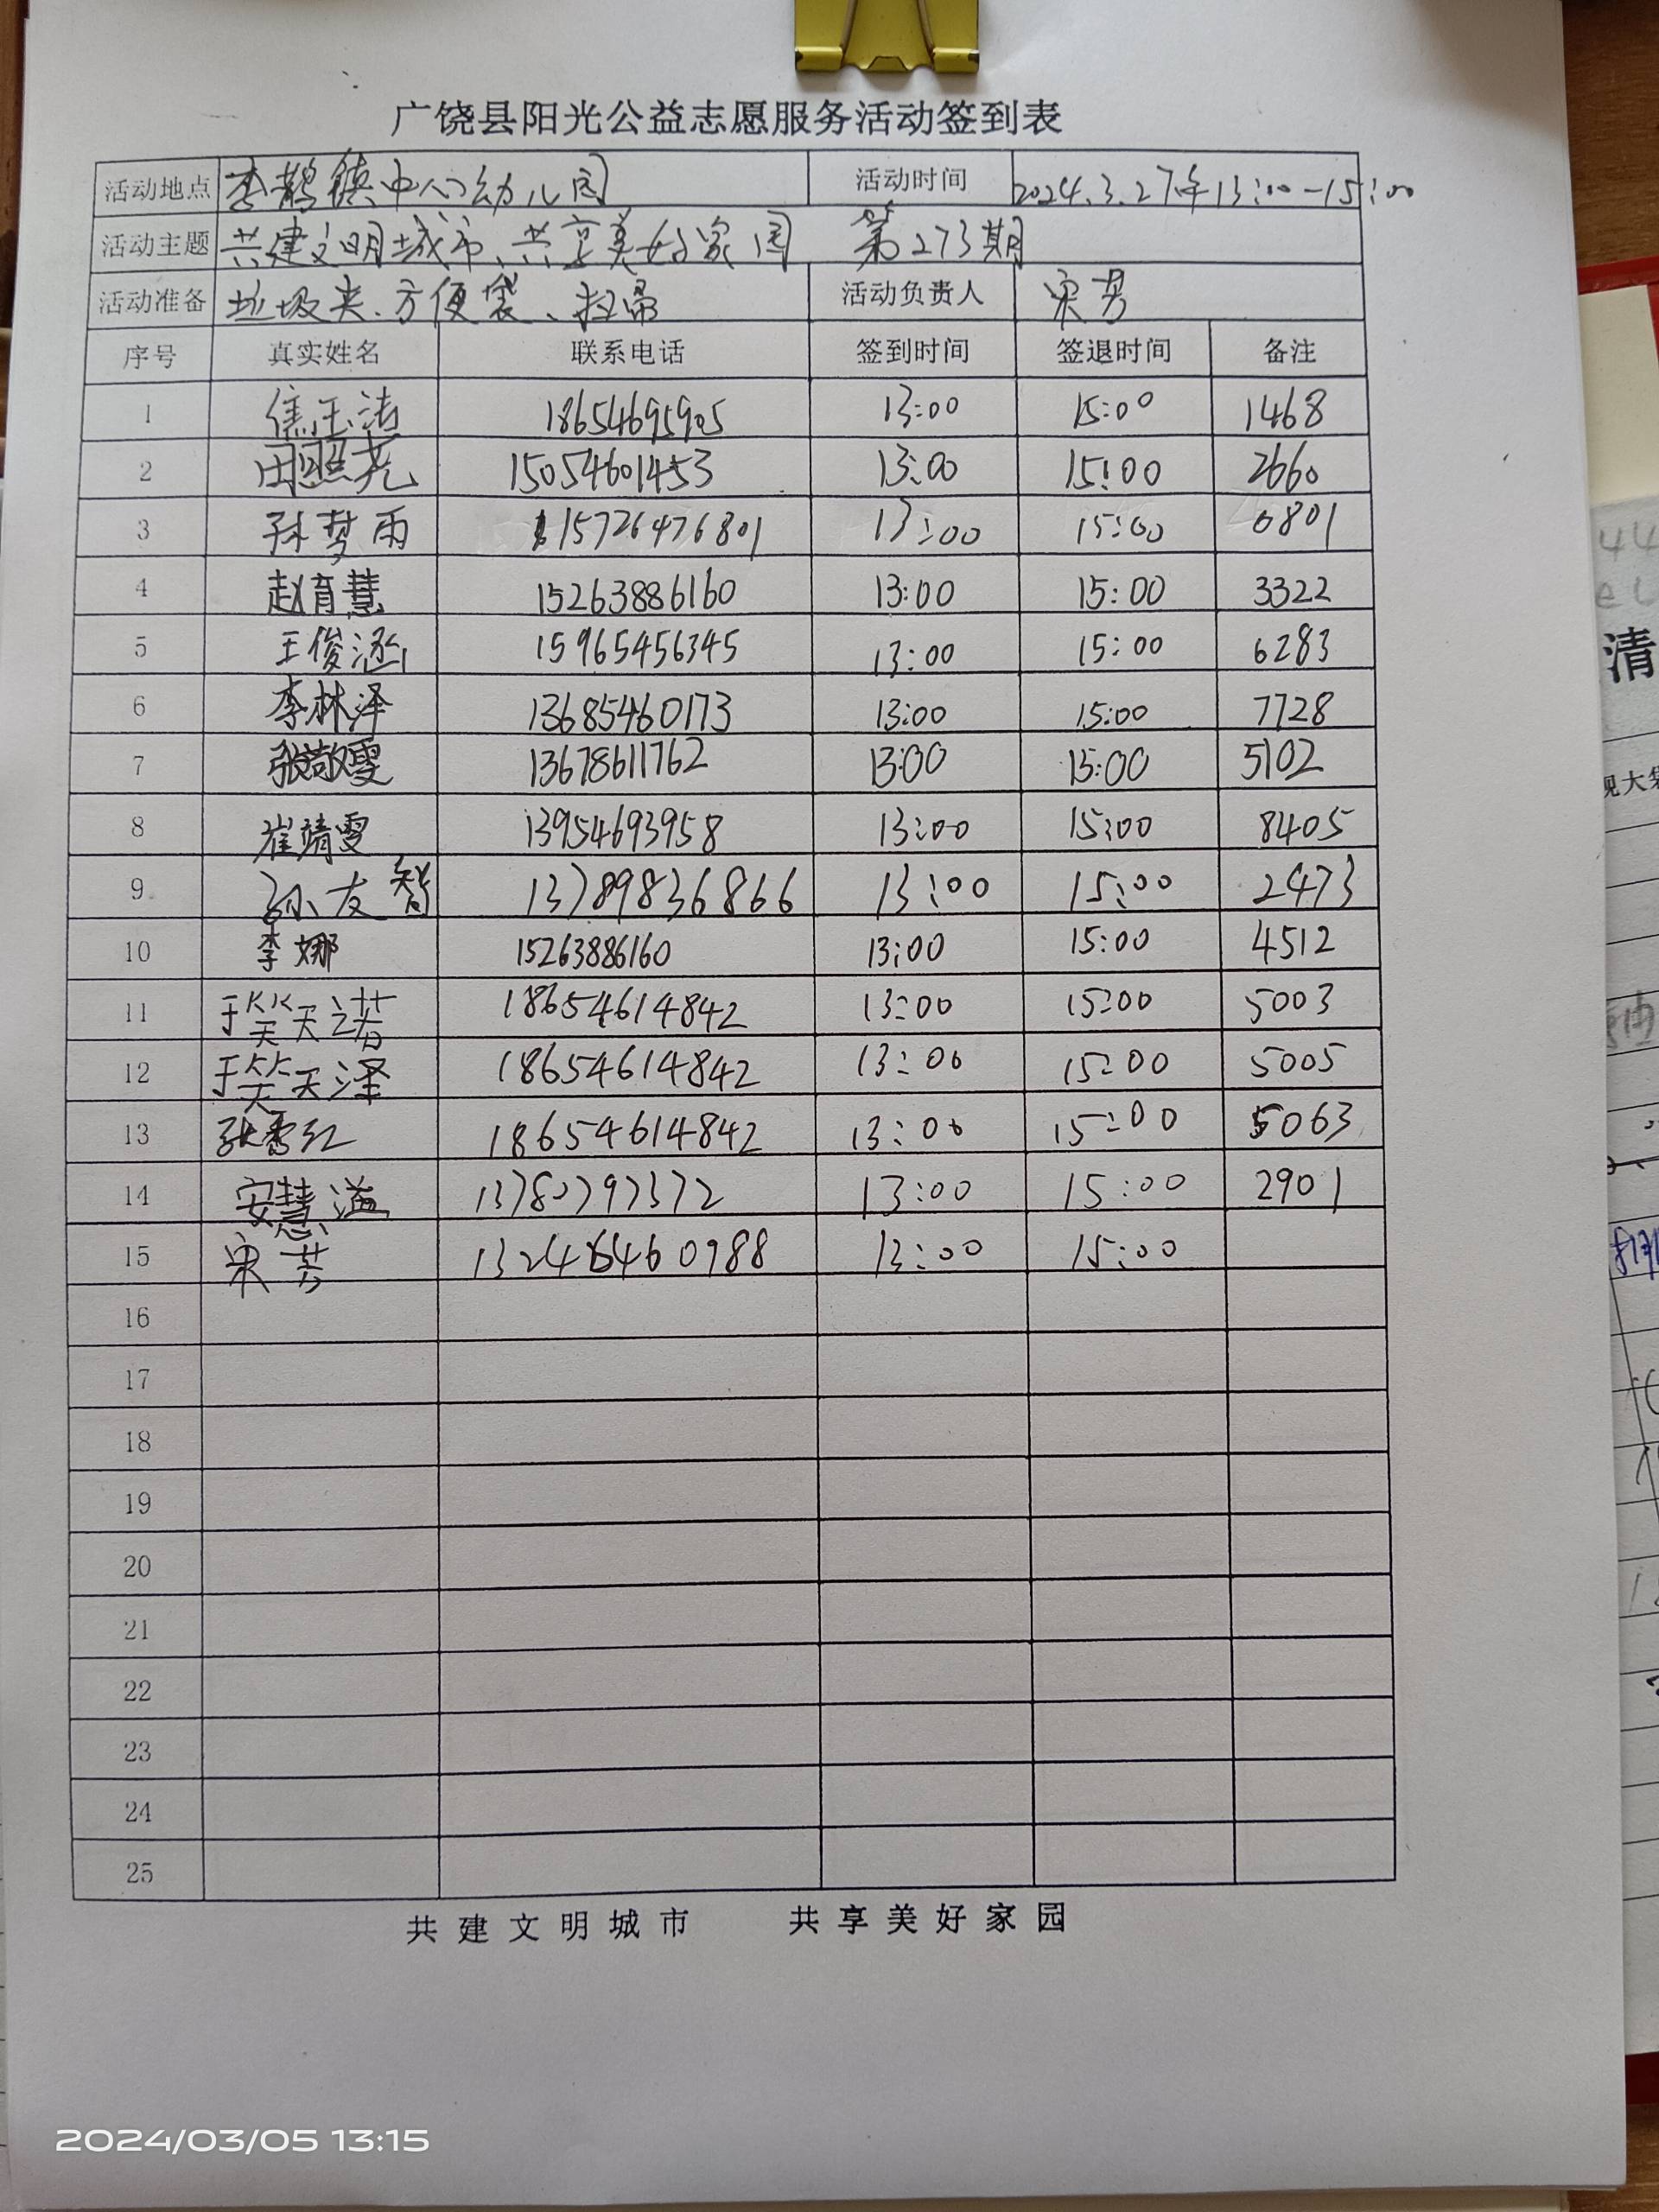 广饶县阳光公益志愿服务活动签到表
活动地点 李鹊镇中心幼儿园 活动时间 2024.3.27下午13:00-15:00
活动主题 共建文明城市、共享美好家园 第273期
活动准备 垃圾夹、方便袋、扫帚 活动负责人 宋芳
序号 真实姓名 联系电话 签到时间 签退时间 备注
1 焦玉洁 18654695905 13:00 15:00 1468
2 田照尧 15054601453 13:00 15:00 2660
3 孙梦雨 15726476801 13:00 15:00 6801
4 赵育慧 15263886160 13:00 15:00 3322
5 王俊涵 15965456345 13:00 15:00 6283
6 李林泽 13685460173 13:00 15:00 7728
7 张敬雯 13678611762 13:00 15:00 5102
8 崔靖雯 13954693958 13:00 15:00 8405
9 孙友智 13789836866 13:00 15:00 2473
10 李娜 15263886160 13:00 15:00 4512
11 于笑天诺 18654614842 13:00 15:00 5003
12 于笑天泽 18654614842 13:00 15:00 5005
13 张秀红 18654614842 13:00 15:00 5063
14 安慧溢 13:00 15:00 2901
15 宋芳 13:00 15:00
16
17
18
19
20
21
22
23
24
25
共建文明城市 共享美好家园
清
2024/03/05 13:15